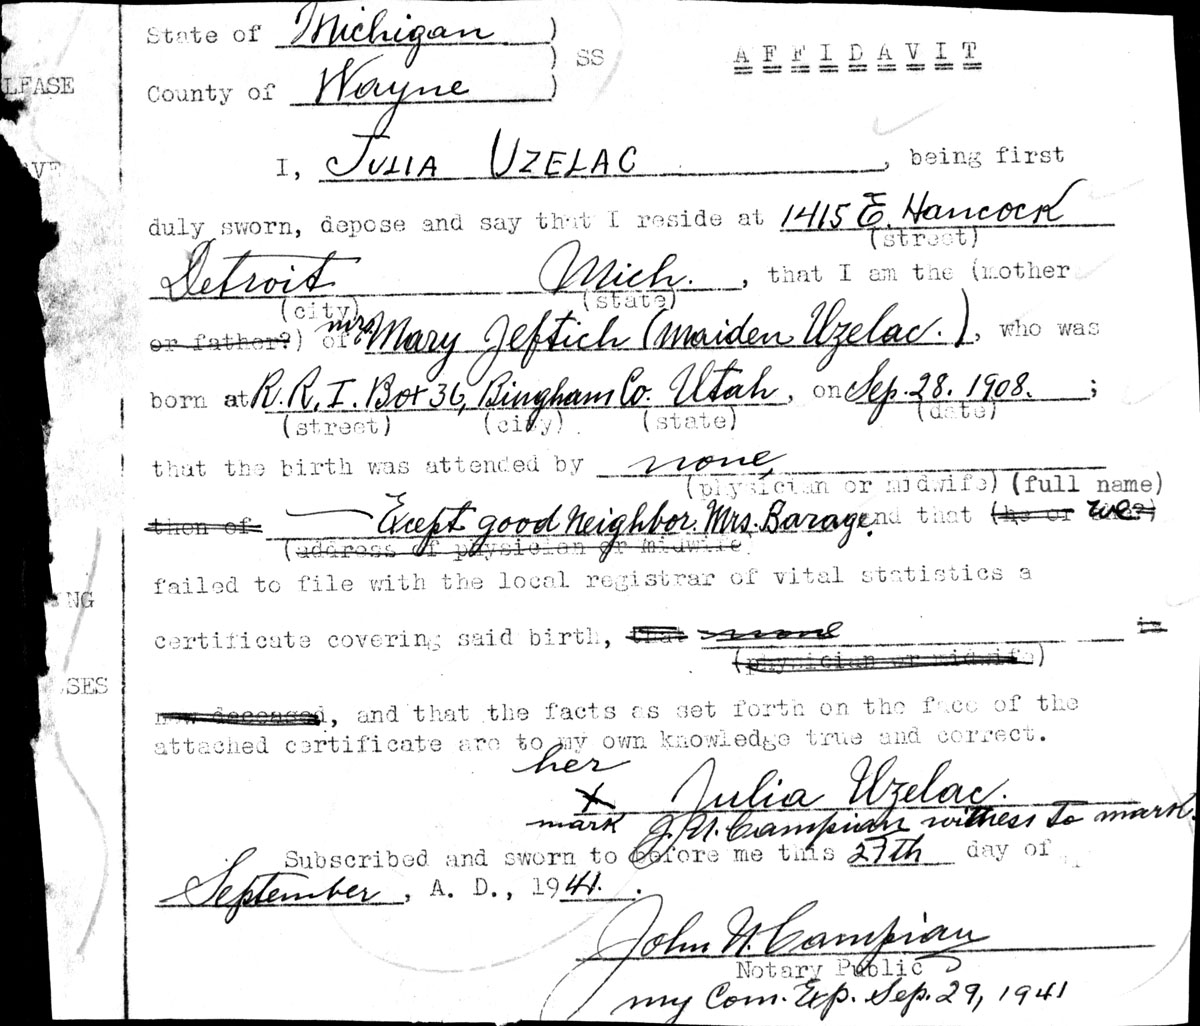 State of Michigan )
) SS AFFIDAVIT
LEASE
County of Wayne )
I, JULIA UZELAC, being first
duly sworn, depose and say that I reside at 1415 E. Hancock
(street)
Detroit Mich., that I am the (mother
(city) (state)
or father?) of Mrs. Mary Jeftich (Maiden Uzelac.), who was
born at R. R. I. Box 36, Bingham Co. Utah, on Sep. 28. 1908. ;
(street) (city) (state) (date)
that the birth was attended by none,
(physician or midwife) (full name)
then of Except good Neighbor. Mrs. Barage. and that (he or we?)
(address of physician or midwife
failed to file with the local registrar of vital statistics a
NG
certificate covering said birth, that none is
(physician or midwife)
SES
now deceased, and that the facts as set forth on the face of the
attached certificate are to my own knowledge true and correct.
her
X Julia Uzelac.
mark J. N. Campian witness to mark.
Subscribed and sworn to before me this 27th day of
September, A. D., 1941. .
John N. Campian
Notary Public
my Com. Exp. Sep. 29, 1941